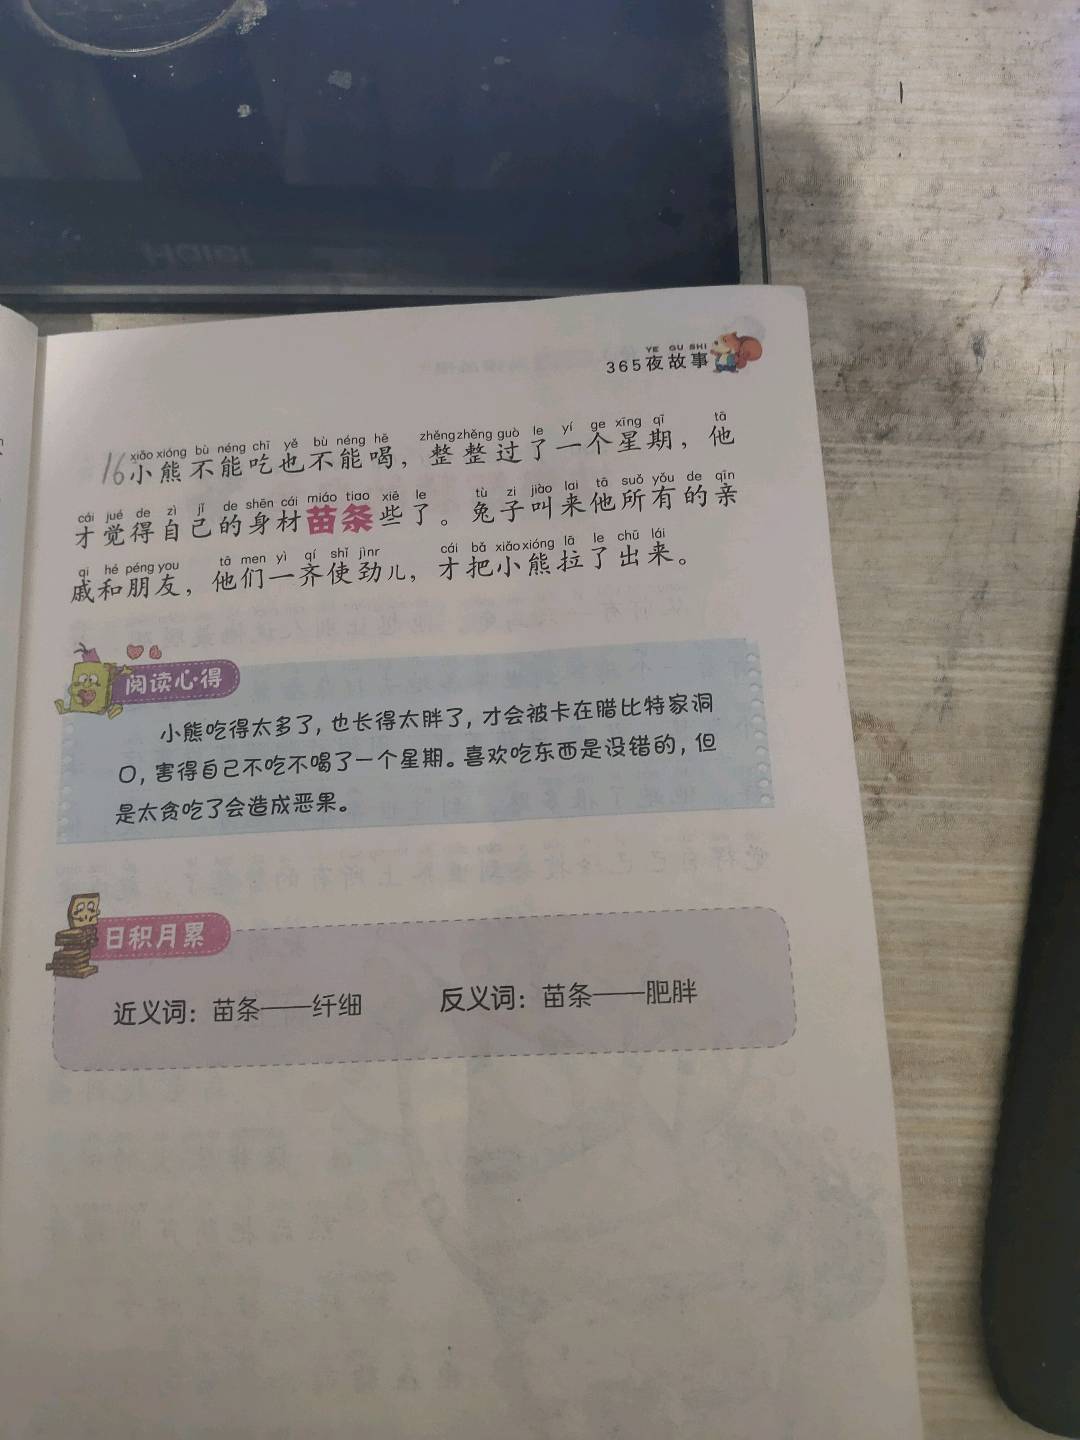 Haier
YE GU SHI
365夜故事
xiǎo xióng bù néng chī yě bù néng hē zhěng zhěng guò le yí ge xīng qī tā
16小熊不能吃也不能喝，整整过了一个星期，他
cái jué de zì jǐ de shēn cái miáo tiao xiē le tù zi jiào lai tā suǒ yǒu de qīn
才觉得自己的身材苗条些了。兔子叫来他所有的亲
qi hé péng you tā men yì qí shǐ jìnr cái bǎ xiǎo xióng lā le chū lái
戚和朋友，他们一齐使劲儿，才把小熊拉了出来。
阅读心得
小熊吃得太多了，也长得太胖了，才会被卡在腊比特家洞
口，害得自己不吃不喝了一个星期。喜欢吃东西是没错的，但
是太贪吃了会造成恶果。
日积月累
近义词：苗条——纤细 反义词：苗条——肥胖